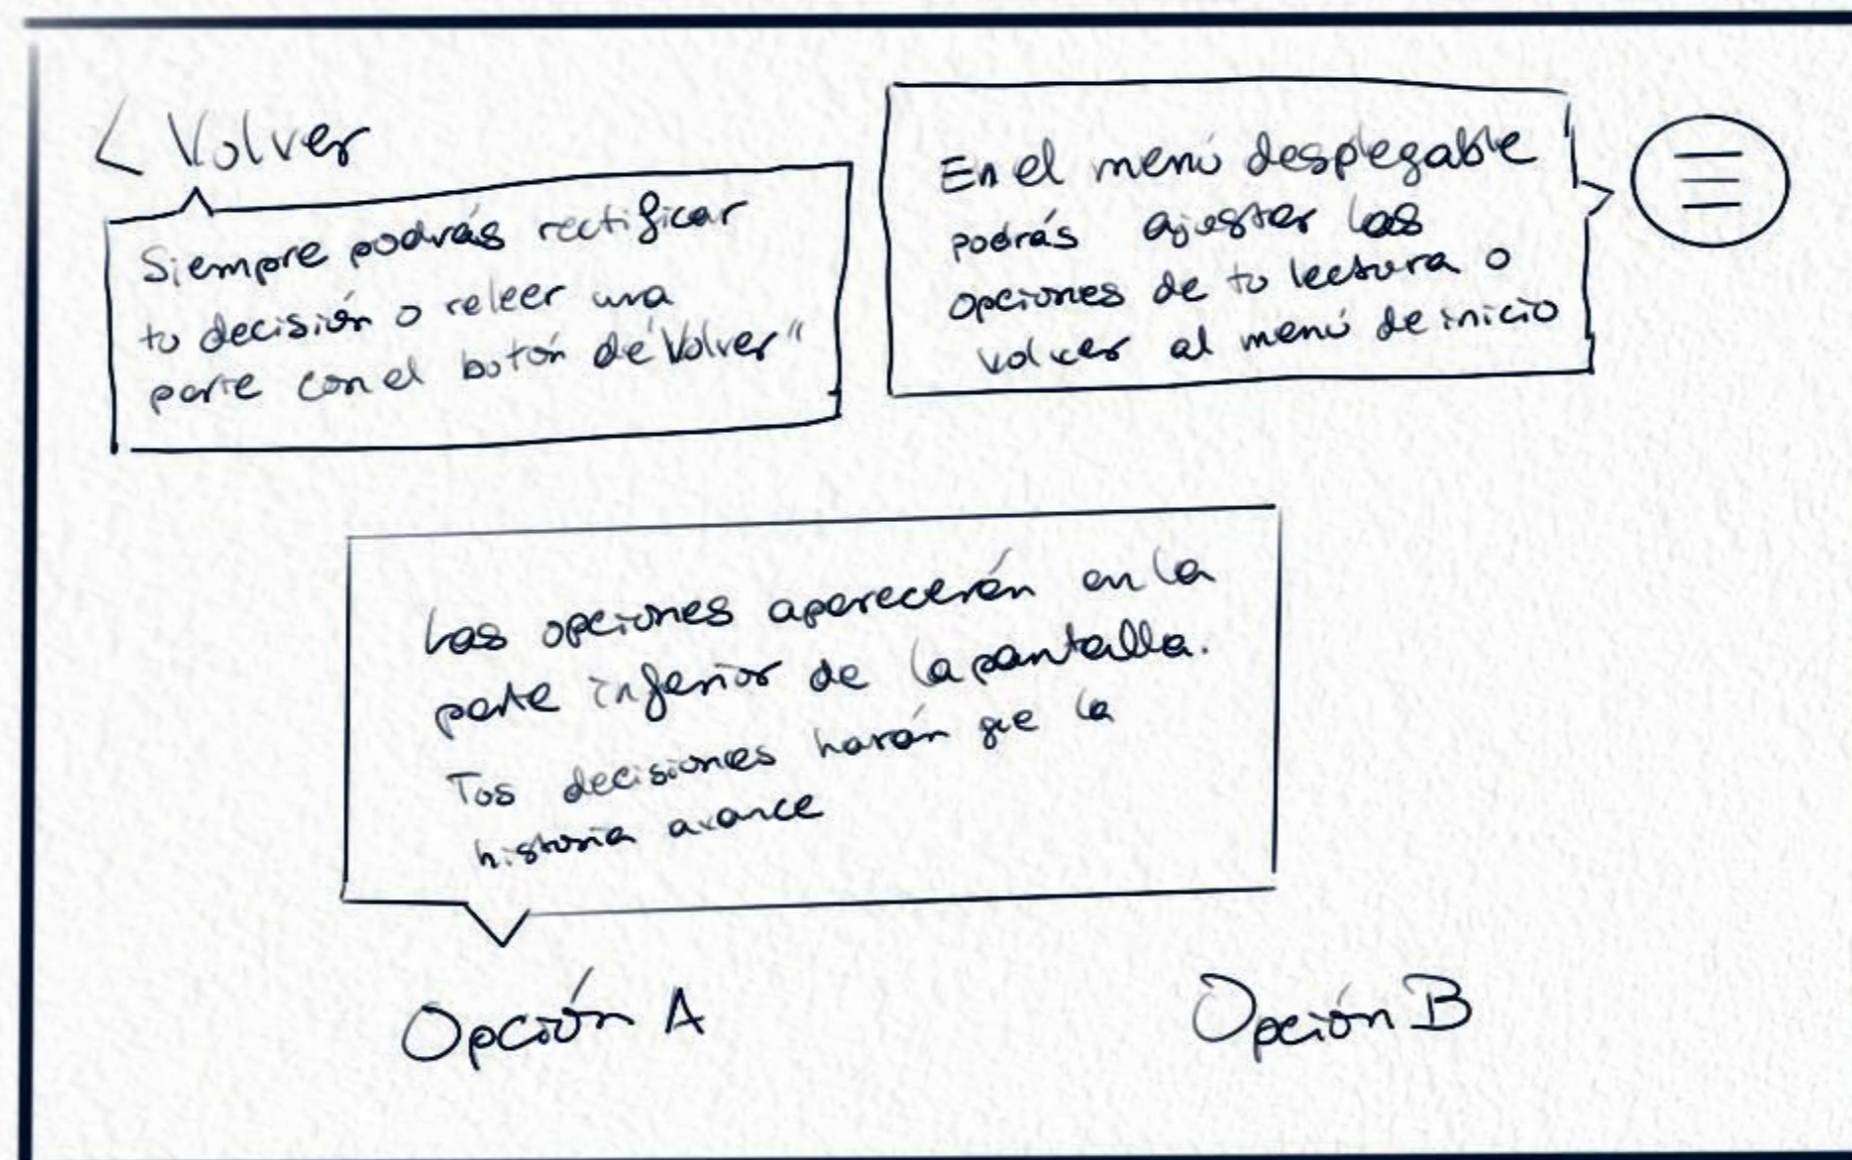 < Volver
Siempre podrás rectificar
tu decisión o releer una
parte con el botón de "Volver"
En el menú desplegable
podrás ajustar las
opciones de tu lectura o
volver al menú de inicio
Las opciones aparecerán en la
parte inferior de la pantalla.
Tus decisiones harán que la
historia avance
Opción A
Opción B